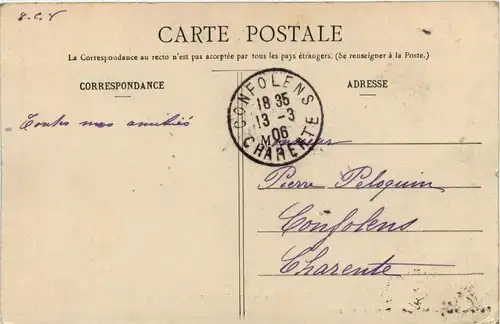 CARTE POSTALE
La Correspondance au recto n'est pas acceptée par tous les pays étrangers. (Se renseigner à la Poste.)
CORRESPONDANCE
ADRESSE
Toutes mes amitiés
CONFOLENS
18 35
13 -3
06
CHARENTE
Monsieur
Pierre Peloquin
Confolens
Charente